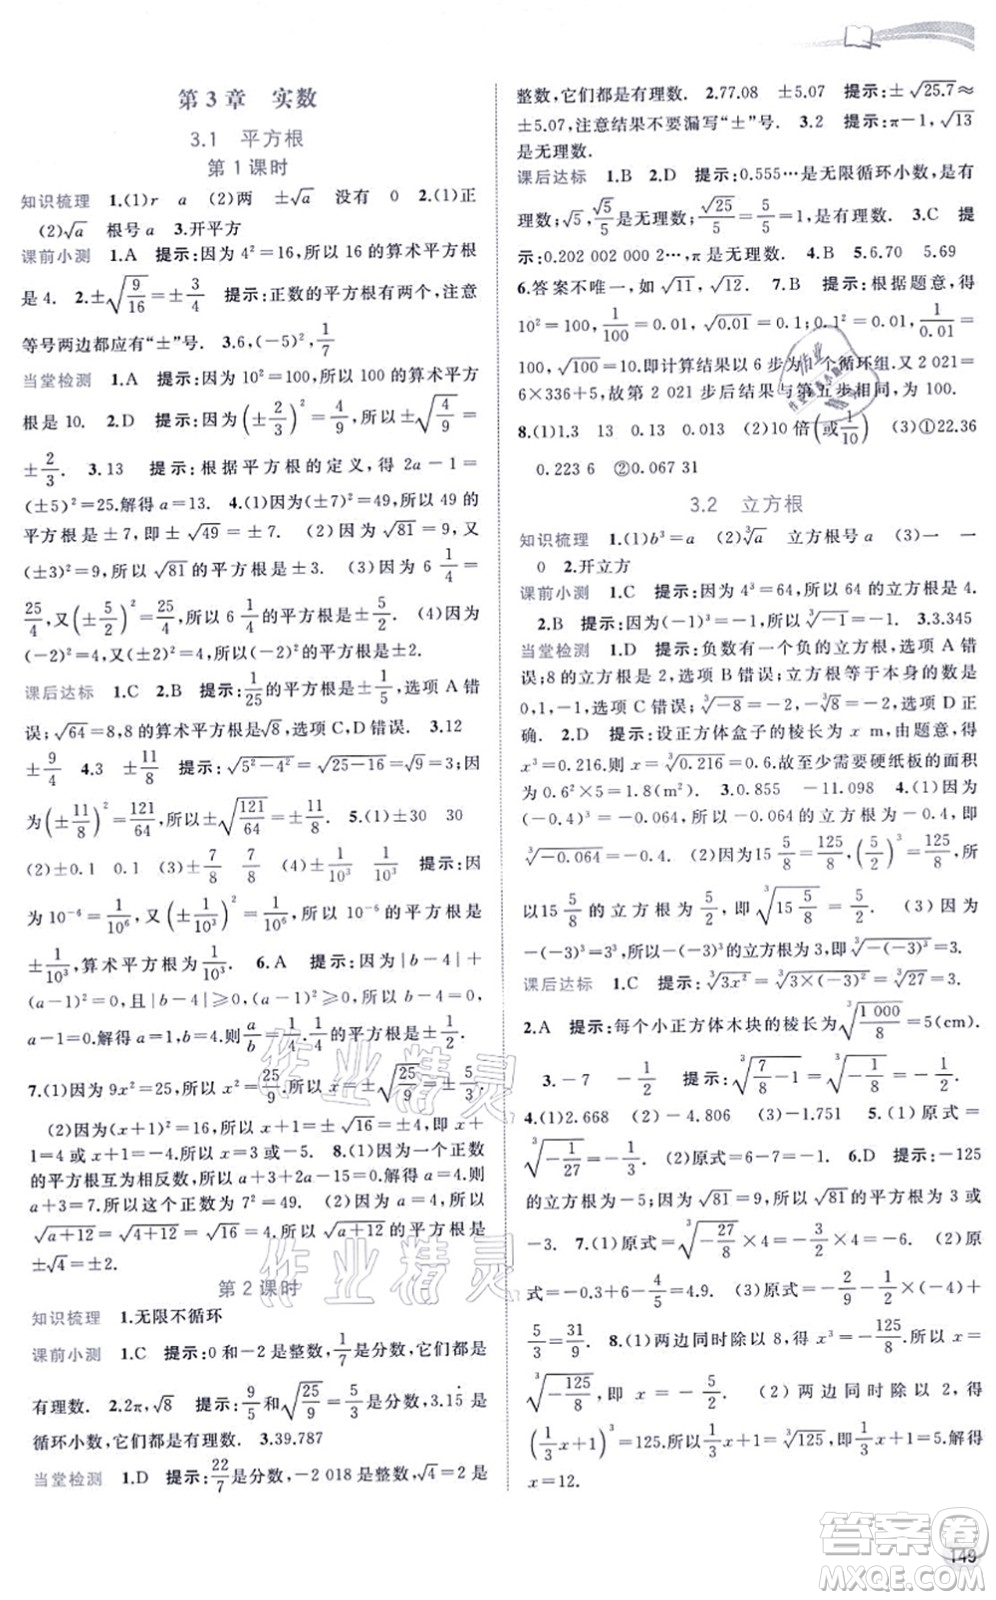 第3章 实数
3.1 平方根
第1课时
知识梳理 1.(1)r a (2)两 ±√a 没有 0 2.(1)正
(2)√a 根号a 3.开平方
课前小测 1.A 提示:因为4²=16,所以16的算术平方根
是4. 2.±√(9/16)=±3/4 提示:正数的平方根有两个,注意
等号两边都应有“±”号. 3.6,(-5)²,1/7
当堂检测 1.A 提示:因为10²=100,所以100的算术平方
根是10. 2.D 提示:因为(±2/3)²=4/9,所以±√(4/9)=
±2/3. 3.13 提示:根据平方根的定义,得2a-1=
(±5)²=25.解得a=13. 4.(1)因为(±7)²=49,所以49的
平方根是±7,即±√49=±7. (2)因为√81=9,
(±3)²=9,所以√81的平方根是±3. (3)因为6 1/4=
25/4,又(±5/2)²=25/4,所以6 1/4的平方根是±5/2. (4)因为
(-2)²=4,所以(-2)²的平方根是±2.
课后达标 1.C 2.B 提示:1/25的平方根是±1/5,选项A错
误;√64=8,8的算术平方根是√8,选项C,D错误. 3.12
±9/4 4.3 ±11/8 提示:√(5²-4²)=√(25-16)=√9=3;因
为(±11/8)²=121/64,所以±√(121/64)=±11/8. 5.(1)±30 30
(2)±0.1 0.1 (3)±7/8 7/8 (4)±1/10³ 1/10³ 提示:因
为10⁻⁶=1/10⁶,又(±1/10³)²=1/10⁶,所以10⁻⁶的平方根是
±1/10³,算术平方根是1/10³. 6.A 提示:因为|b-4|+
(a-1)²=0,且|b-4|≥0,(a-1)²≥0,所以b-4=0,
a-1=0.解得b=4,a=1.则a/b=1/4.1/4的平方根是±1/2.
7.(1)因为9x²=25,所以x²=25/9.所以x=±√(25/9)=±5/3.
(2)因为(x+1)²=16,所以x+1=±√16=±4.所以x+
1=4或x+1=-4.所以x=3或-5. 8.(1)因为一个正数
的平方根互为相反数,所以a+3+2a-15=0.解得a=4.则
a+3=7.所以这个正数为7²=49. (2)因为a=4,所以
√(a+12)=√(4+12)=√16=4.所以√(a+12)的平方根是
±√4=±2.
第2课时
知识梳理 1.无限不循环
课前小测 1.C 提示:0和-2是整数,1/7是分数,它们都是
有理数. 2.2π,√8 提示:9/5和√(25/9)=5/3是分数,3.15̇是
循环小数,它们都是有理数. 3.39.787
当堂检测 1.D 提示:22/7是分数,-2 018是整数,√4=2是
整数,它们都是有理数. 2.77.08 ±5.07 提示:±√25.7≈
±5.07,注意结果不要漏写“±”号. 3.2 提示:π-1,√13
是无理数.
课后达标 1.B 2.D 提示:0.555…是无限循环小数,是有
理数;√5,√5/5是无理数;√25/5=5/5=1,是有理数. 3.C 提
示:0.202 002 000 2…,√5是无理数. 4.B 5.6.70 5.69
6.答案不唯一,如√11,√12. 7.B 提示:根据题意,得
10²=100,1/100=0.01,√0.01=0.1,0.1²=0.01,1/0.01=
100,√100=10.即计算结果以6步为一个循环组.又2 021=
6×336+5,故第2 021步后结果与第五步相同,为100.
8.(1)1.3 13 0.13 0.013 (2)10倍(或1/10) (3)①22.36
0.223 6 ②0.067 31
3.2 立方根
知识梳理 1.(1)b³=a (2)³√a 立方根号a (3)一 一
0 2.开立方
课前小测 1.C 提示:因为4³=64,所以64的立方根是4.
2.B 提示:因为(-1)³=-1,所以³√-1=-1. 3.3.345
当堂检测 1.D 提示:负数有一个负的立方根,选项A错
误;8的立方根是2,选项B错误;立方根等于本身的数是
0,1,-1,选项C错误;³√-8=-2,-³√8=-2,选项D正
确. 2.D 提示:设正方体盒子的棱长为x m,由题意,得
x³=0.216.则x=³√0.216=0.6.所以需要硬纸板的面积
为0.6²×5=1.8(m²). 3.0.855 -11.098 4.(1)因为
(-0.4)³=-0.064,所以-0.064的立方根为-0.4,即
³√-0.064=-0.4. (2)因为15 5/8=125/8,(5/2)³=125/8,所
以15 5/8的立方根为5/2,即³√(15 5/8)=5/2. (3)因为
-(-3)³=3³,所以-(-3)³的立方根为3,即³√-(-3)³=3.
课后达标 1.C 提示:³√3x²=³√(3×(-3)²)=³√27=3.
2.A 提示:每个小正方体木块的棱长为³√(1 000/8)=5(cm).
3.-7 -1/2 提示:³√(7/8-1)=³√(-1/8)=-1/2.
4.(1)2.668 (2)-4.806 (3)-1.751 5.(1)原式=
³√(-1/27)=-1/3. (2)原式=6-7=-1. 6.D 提示:-125
的立方根为-5;因为√81=9,所以√81的平方根为3或
-3. 7.(1)原式=³√(-27/8)×4=-3/2×4=-6. (2)原式
=-0.3+6/5-(-8)=8.9. (3)原式=-8×1/8×(-4)×
5/3=31/9. 8.(1)两边同时除以8,得x³=-125/8.所以x=
³√(-125/8),即x=-5/2. (2)两边同时除以2,得
(1/3x+1)³=125.所以1/3x+1=³√125,即1/3x+1=5.解得
x=12.
作业精灵
作业精灵
答案圈
MXQE.COM
149